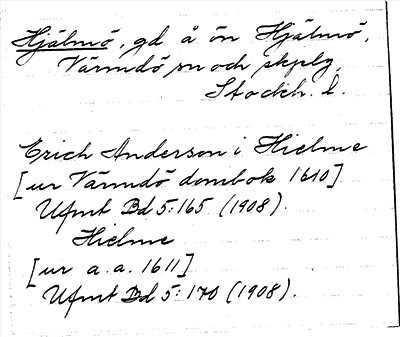 Hjälmö, gd å ön Hjälmö,
Värmdö sn och skplg,
Stockh. l.
Erich Anderson i Hielme
[ur Värmdö dombok 1610]
Ufmt Bd 5:165 (1908).
Hielme
[ur a.a. 1611]
Ufmt Bd 5:170 (1908).